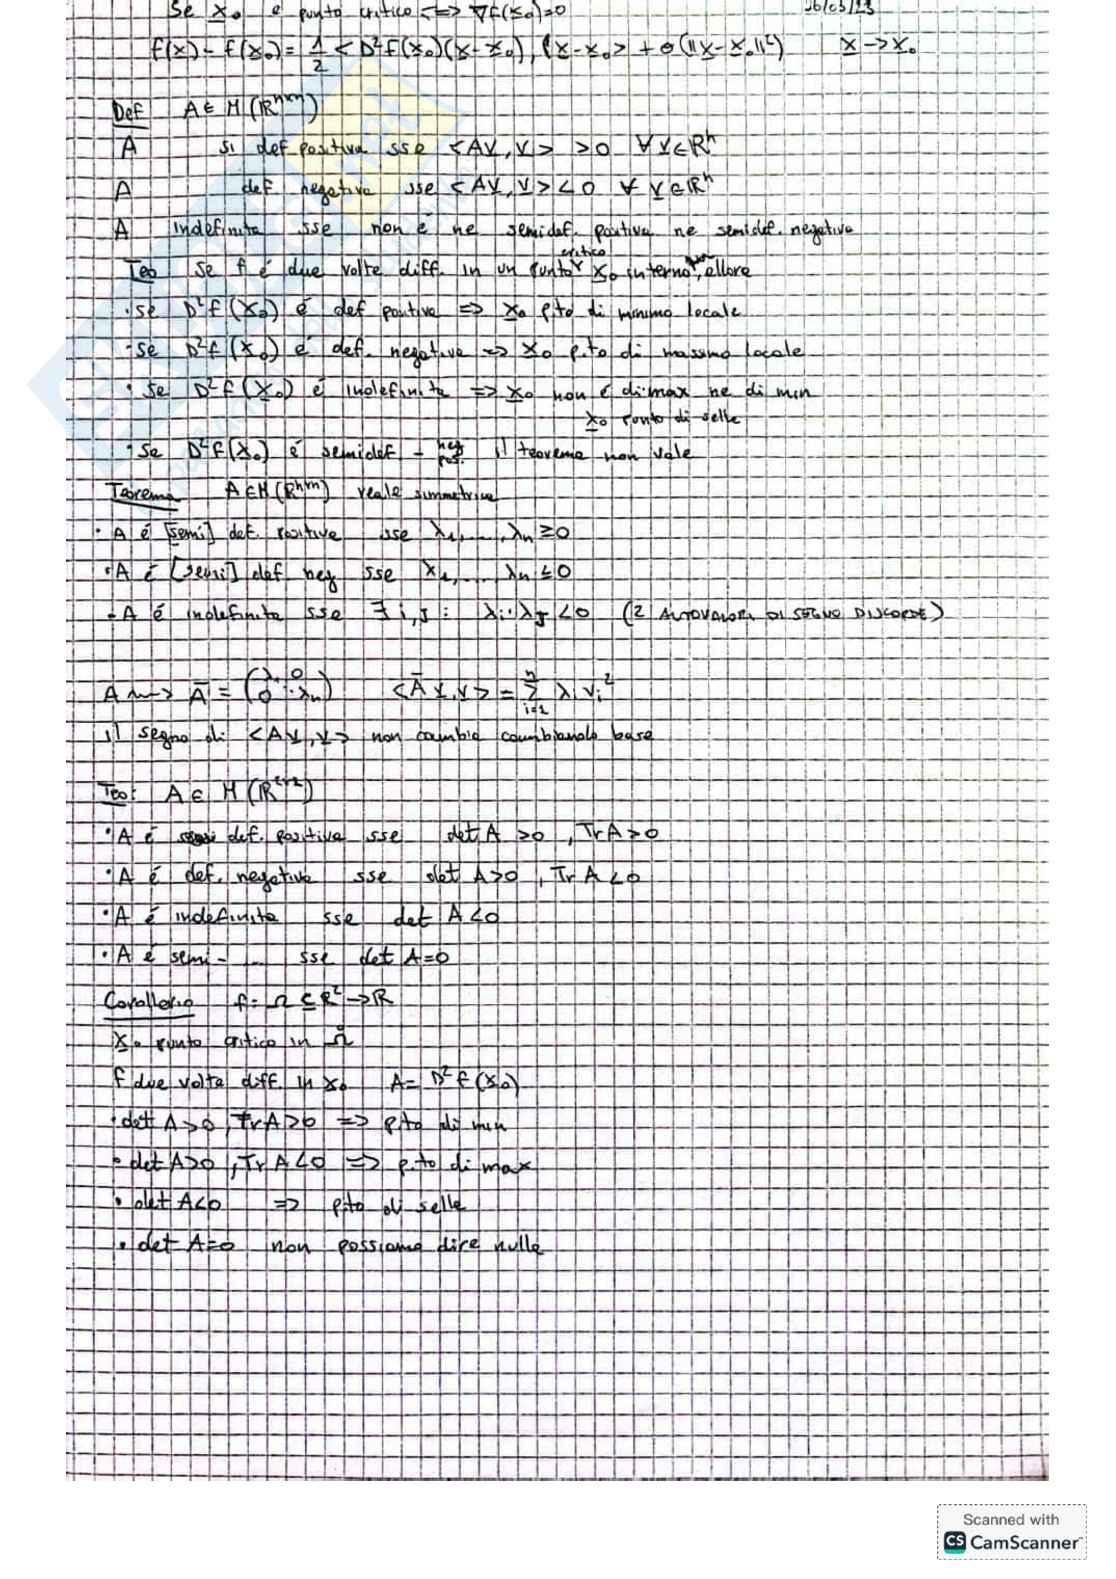 Se x₀ è punto critico <=> ∇f(x₀)=0 26/05/23
f(x) - f(x₀) = 1/2 < D²f(x₀)(x-x₀), (x-x₀> + o(||x-x₀||²) x -> x₀
Def A ∈ M(R^nxn)
A si def positiva sse <Av, v> >0 ∀ v∈R^n
A def negativa sse <Av, v> <0 ∀ v∈R^n
A indefinita sse non è ne semidef. positiva ne semidef. negativa
Teo Se f è due volte diff. in un punto critico x₀ interno, allora
• se D²f(x₀) è def positiva => x₀ p.to di minimo locale
• se D²f(x₀) è def. negativa => x₀ p.to di massimo locale
• se D²f(x₀) è indefinita => x₀ non è di max ne di min
x₀ punto di sella
• Se D²f(x₀) è semidef - neg pos. il teorema non vale
Teorema A∈M(R^nxn) reale simmetrica
• A è [semi] def. positiva sse λ₁,...., λn ≥0
• A è [semi] def neg sse λ₁,.... λn ≤0
- A è indefinita sse ∃ i,J : λi·λJ <0 (2 AUTOVALORI DI SEGNO DISCORDE)
A ~> Ā = (λ₁ 0 0 ⋱ λn) <Ā v, v> = Σ i=1 n λi vi²
il segno di <Av, v> non cambia cambiando base
Teo: A ∈ M(R^2x2)
• A è def. positiva sse det A >0 , Tr A>0
• A è def. negativa sse det A>0 , Tr A <0
• A è indefinita sse det A<0
• A è semi- ... sse det A=0
Corollario f: Ω ⊆ R² -> R
x₀ punto critico in Ω̊
f due volte diff. in x₀ A= D²f(x₀)
• det A>0, TrA>0 => p.to di min
• det A>0, Tr A<0 => p.to di max
• det A<0 => p.to di sella
• det A=0 non possiamo dire nulla
Scanned with
CS CamScanner